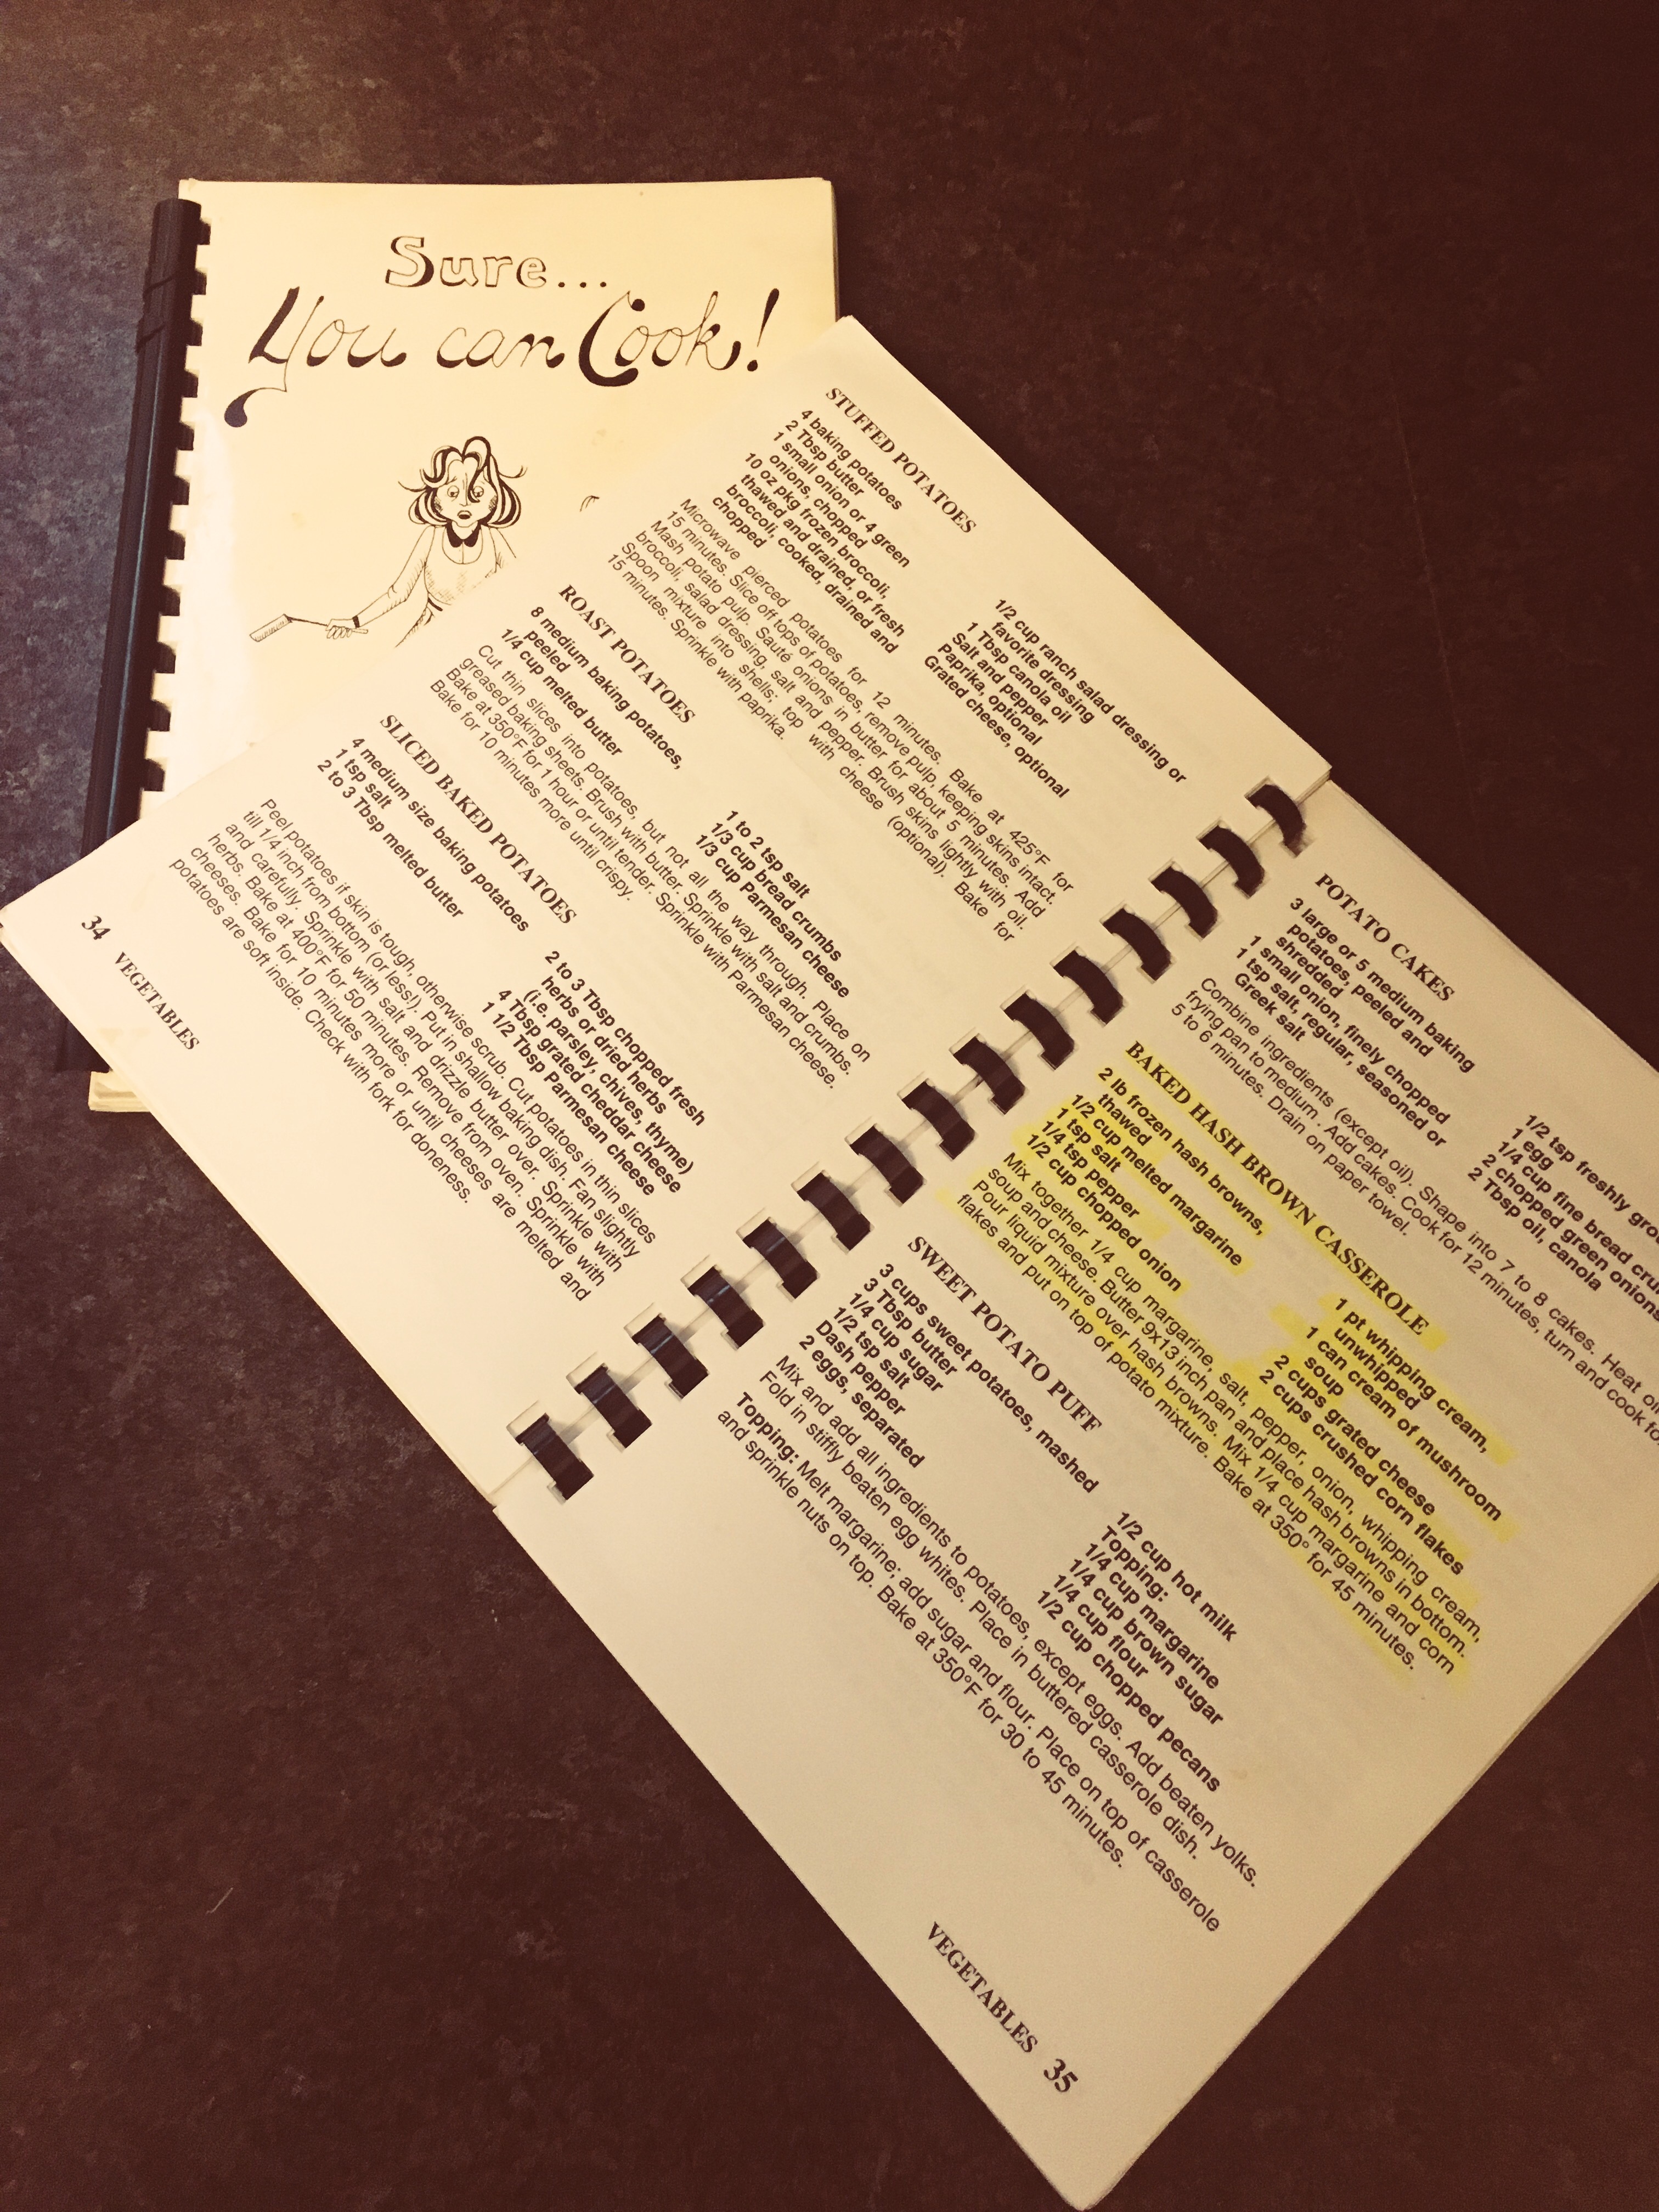 Sure...
You can Cook!
STUFFED POTATOES
4 baking potatoes
2 Tbsp butter
1 small onion or 4 green
onions, chopped
10 oz pkg frozen broccoli,
thawed and drained, or fresh
broccoli, cooked, drained and
chopped
1/2 cup ranch salad dressing or
favorite dressing
1 Tbsp canola oil
Salt and pepper
Paprika, optional
Grated cheese, optional
Microwave pierced potatoes for 12 minutes. Bake at 425°F for
15 minutes. Slice off tops of potatoes, remove pulp, keeping skins intact.
Mash potato pulp. Sauté onions in butter for about 5 minutes. Add
broccoli, salad dressing, salt and pepper. Brush skins lightly with oil.
Spoon mixture into shells; top with cheese (optional). Bake for
15 minutes. Sprinkle with paprika.
ROAST POTATOES
8 medium baking potatoes,
peeled
1/4 cup melted butter
1 to 2 tsp salt
1/3 cup bread crumbs
1/3 cup Parmesan cheese
Cut thin slices into potatoes, but not all the way through. Place on
greased baking sheets. Brush with butter. Sprinkle with salt and crumbs.
Bake at 350°F for 1 hour or until tender. Sprinkle with Parmesan cheese.
Bake for 10 minutes more until crispy.
SLICED BAKED POTATOES
4 medium size baking potatoes
1 tsp salt
2 to 3 Tbsp melted butter
2 to 3 Tbsp chopped fresh
herbs or dried herbs
(i.e. parsley, chives, thyme)
4 Tbsp grated cheddar cheese
1 1/2 Tbsp Parmesan cheese
Peel potatoes if skin is tough, otherwise scrub. Cut potatoes in thin slices
till 1/4 inch from bottom (or less!). Put in shallow baking dish. Fan slightly
and carefully. Sprinkle with salt and drizzle butter over. Sprinkle with
herbs. Bake at 400°F for 50 minutes. Remove from oven. Sprinkle with
cheeses. Bake for 10 minutes more or until cheeses are melted and
potatoes are soft inside. Check with fork for doneness.
34 VEGETABLES
POTATO CAKES
3 large or 5 medium baking
potatoes, peeled and
shredded
1 small onion, finely chopped
1 tsp salt, regular, seasoned or
Greek salt
1/2 tsp freshly
1 egg
1/4 cup fine bread
2 chopped green onions
2 Tbsp oil, canola
Combine ingredients (except oil). Shape into 7 to 8 cakes. Heat oil
frying pan to medium. Add cakes. Cook for 12 minutes, turn and cook
5 to 6 minutes. Drain on paper towel.
BAKED HASH BROWN CASSEROLE
2 lb frozen hash browns,
thawed
1/2 cup melted margarine
1 tsp salt
1/4 tsp pepper
1/2 cup chopped onion
1 pt whipping cream,
unwhipped
1 can cream of mushroom
soup
2 cups grated cheese
2 cups crushed corn flakes
Mix together 1/4 cup margarine, salt, pepper, onion, whipping cream,
soup and cheese. Butter 9x13 inch pan and place hash browns in bottom.
Pour liquid mixture over hash browns. Mix 1/4 cup margarine and corn
flakes and put on top of potato mixture. Bake at 350° for 45 minutes.
SWEET POTATO PUFF
3 cups sweet potatoes, mashed
3 Tbsp butter
1/4 cup sugar
1/2 tsp salt
Dash pepper
2 eggs, separated
1/2 cup hot milk
Topping:
1/4 cup margarine
1/4 cup brown sugar
1/4 cup flour
1/2 cup chopped pecans
Mix and add all ingredients to potatoes, except eggs. Add beaten yolks.
Fold in stiffly beaten egg whites. Place in buttered casserole dish.
Topping: Melt margarine; add sugar and flour. Place on top of casserole
and sprinkle nuts on top. Bake at 350°F for 30 to 45 minutes.
VEGETABLES 35